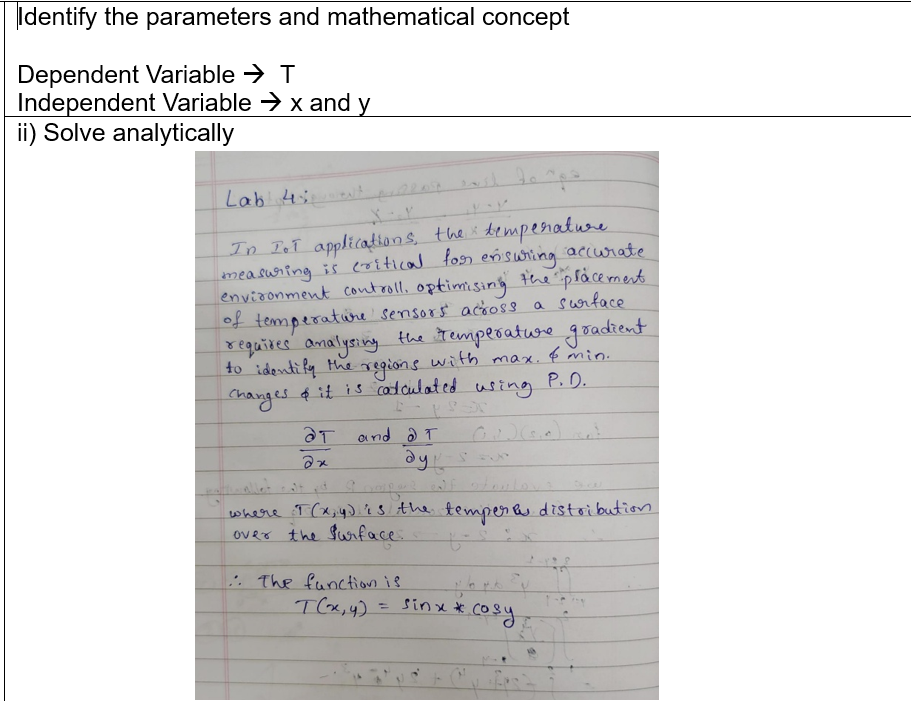 Identify the parameters and mathematical concept
Dependent Variable → T
Independent Variable → x and y
ii) Solve analytically
Lab 4:
In IoT applications, the temperature
measuring is critical for ensuring accurate
environment controll. optimising the placement
of temperature sensors across a surface
requires analysing the Temperature gradient
to identify the regions with max. & min.
changes & it is calculated using P.D.
∂T/∂x and ∂T/∂y
where T(x,y) is the distribution
over the surface.
∴ The function is
T(x,y) = sinx * cosy